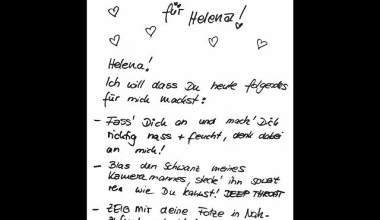 für Helena!
Helena!
Ich will dass Du heute folgendes
für mich machst:
- FASS' Dich an und mach' Dich
richtig nass + feucht, denk dabei
an mich!
- Blas den Schwanz meines
Kameramannes, steck' ihn soweit
rein wie Du kannst! DEEP THROAT
- ZEIG mir deine Fotze in Nah-